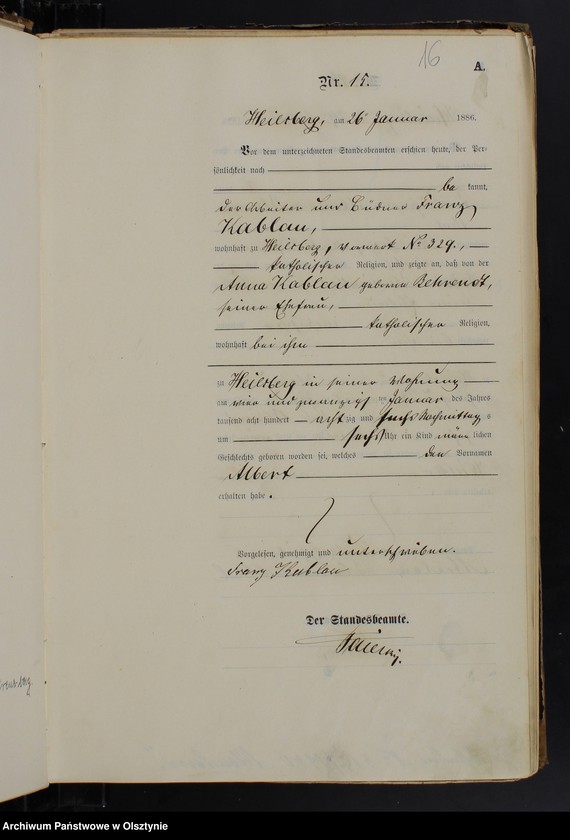 16
A.
Nr. 15.
Heilsberg, am 26 Januar 1886.
Vor dem unterzeichneten Standesbeamten erschien heute, der Per-
sönlichkeit nach
be kannt,
der Arbeiter und Büdner Franz
Kablau,
wohnhaft zu Heilsberg, Vorwerk No 329.,
katholischer Religion, und zeigte an, daß von der
Anna Kablau geborene Behrendt,
seiner Ehefrau,
katholischer Religion,
wohnhaft bei ihm
zu Heilsberg in seiner Wohnung
am vier und zwanzigsten Januar des Jahres
tausend acht hundert achtzig und sechs Nachmittags
um sechs Uhr ein Kind männlichen
Geschlechts geboren worden sei, welches den Vornamen
Albert
erhalten habe.
Vorgelesen, genehmigt und unterschrieben.
Franz Kablau
Der Standesbeamte.
Archiwum Państwowe w Olsztynie